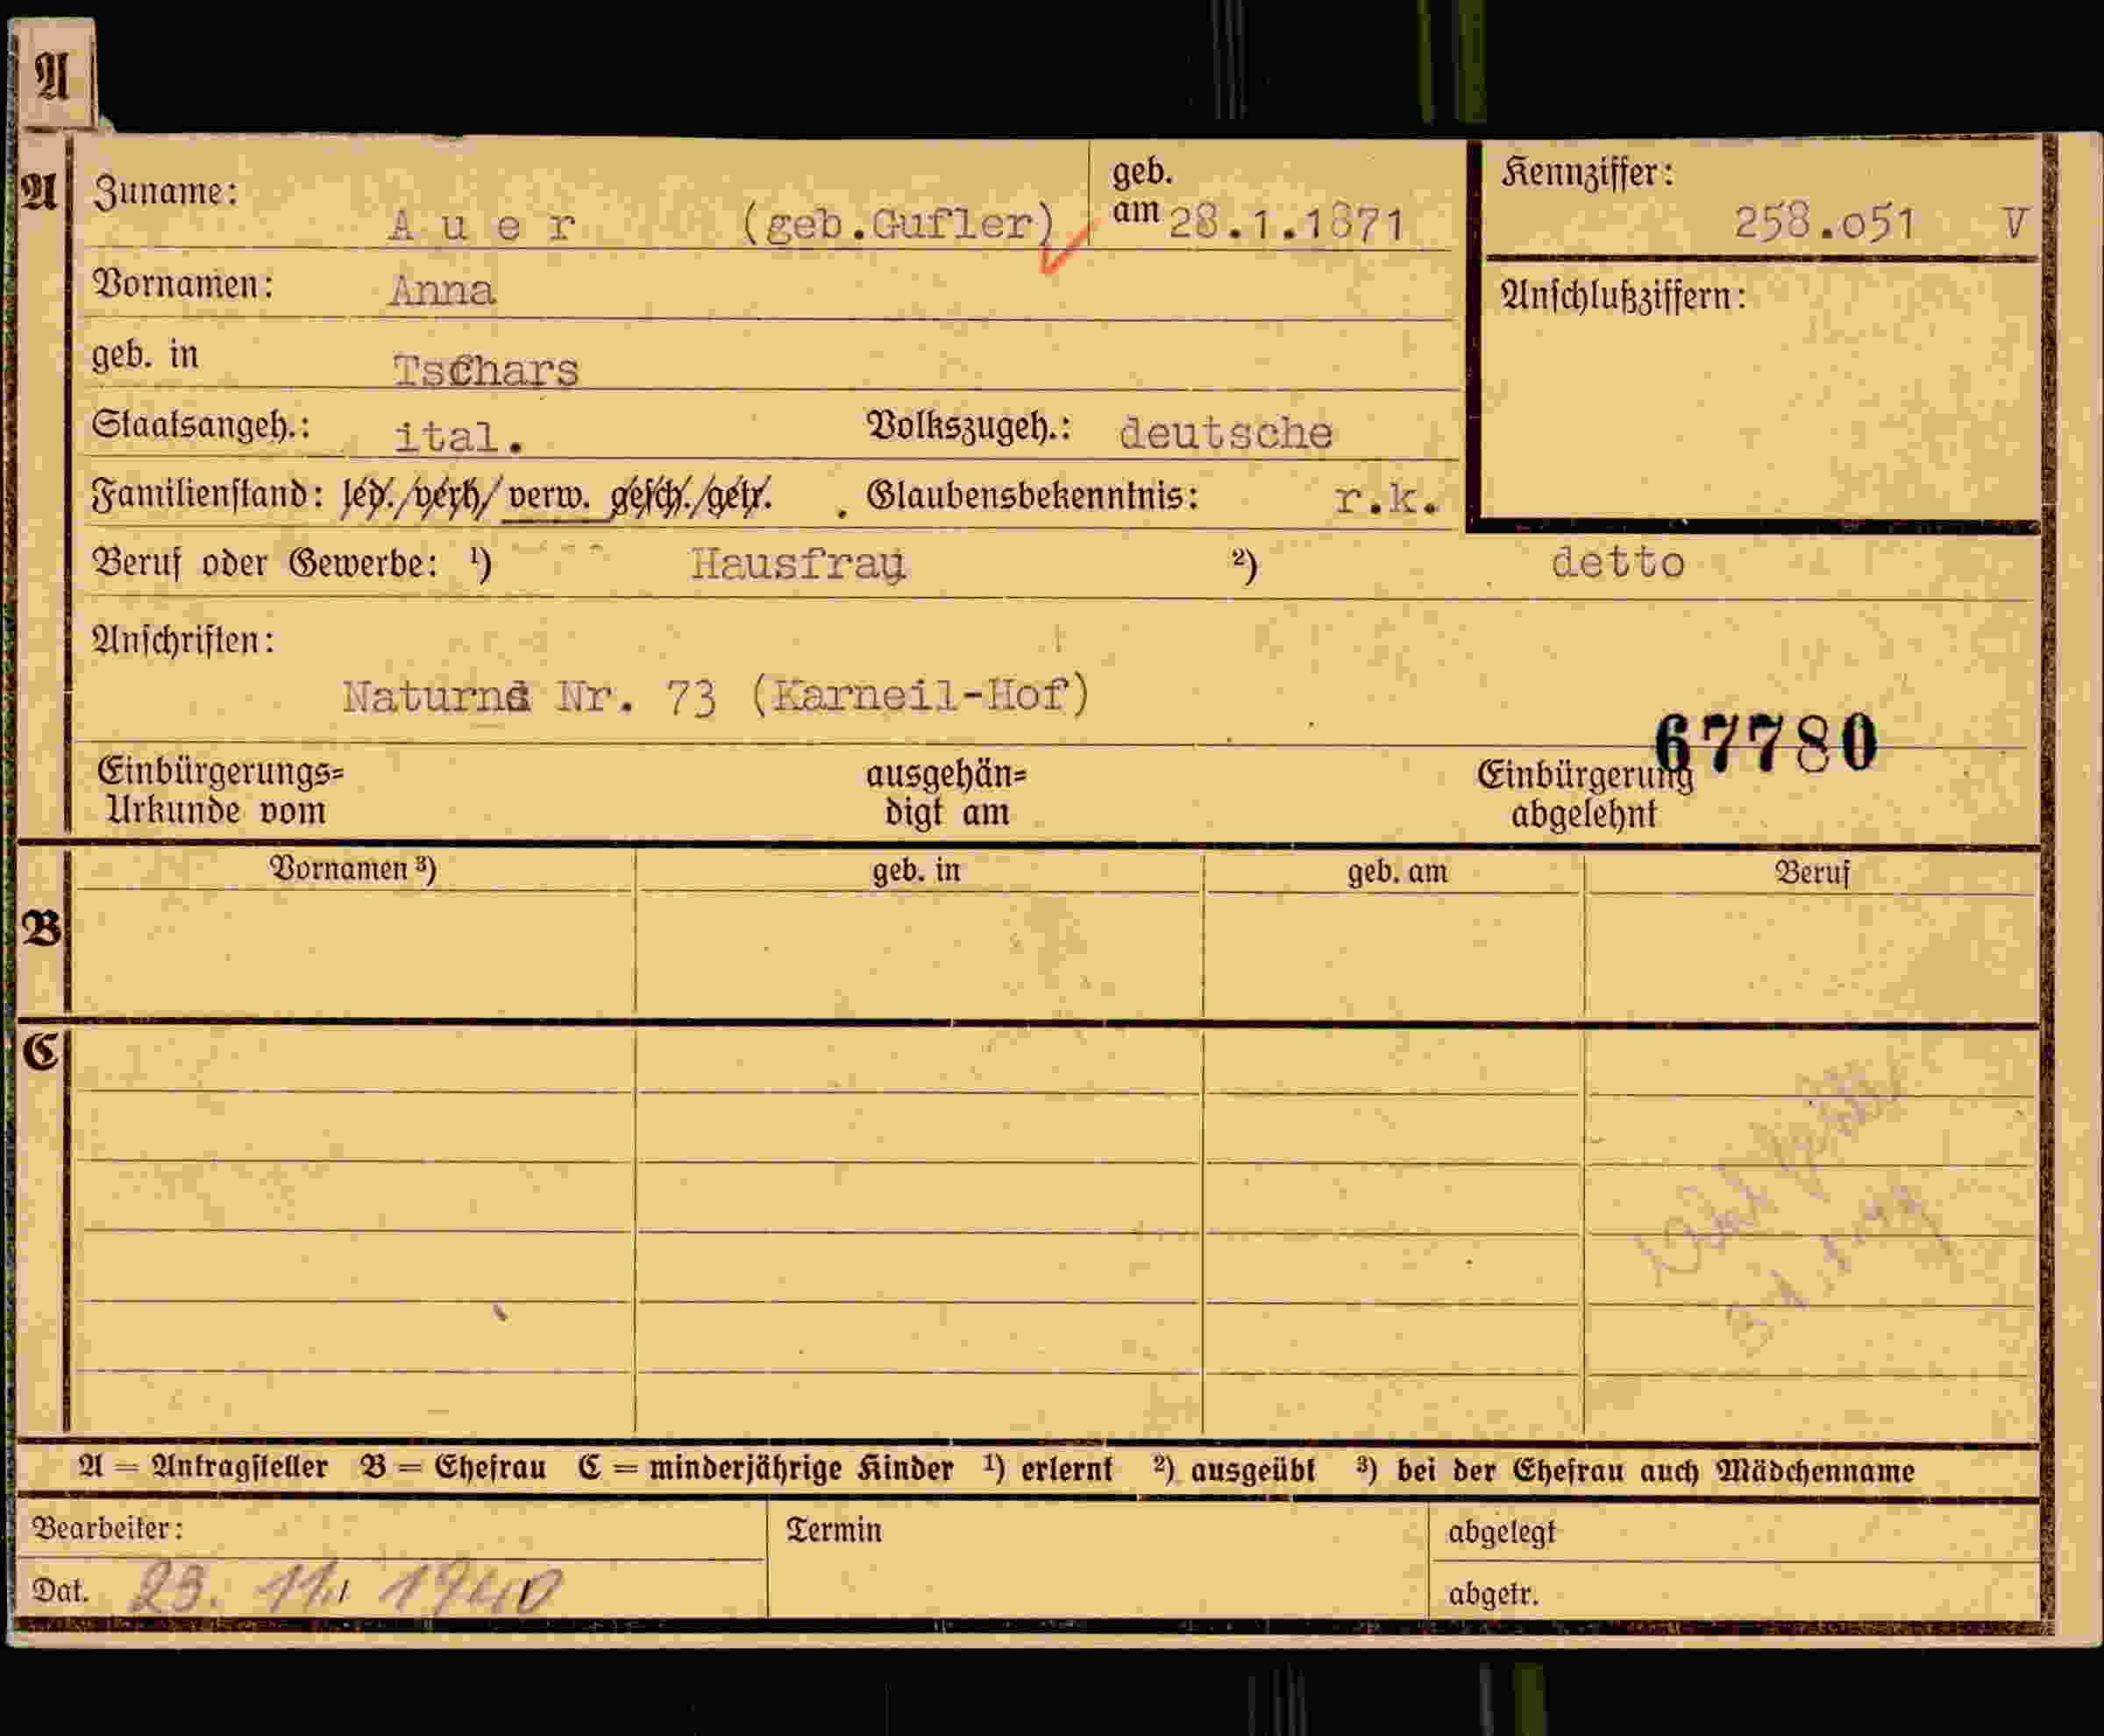 A
A Zuname: Auer (geb.Gufler) geb. am 28.1.1871 Kennziffer: 258.051 V
Vornamen: Anna Anschlußziffern:
geb. in Tschars
Staatsangeh.: ital. Volkszugeh.: deutsche
Familienstand: led./verh/verw. gesch./getr. . Glaubensbekenntnis: r.k.
Beruf oder Gewerbe: ¹) Hausfrau ²) detto
Anschriften:
Naturns Nr. 73 (Karneil-Hof)
67780
Einbürgerungs= ausgehän= Einbürgerung
Urkunde vom digt am abgelehnt
Vornamen ³) geb. in geb. am Beruf
B
C
A = Antragsteller B = Ehefrau C = minderjährige Kinder ¹) erlernt ²) ausgeübt ³) bei der Ehefrau auch Mädchenname
Bearbeiter: Termin abgelegt
Dat. 23. 11. 1940 abgetr.